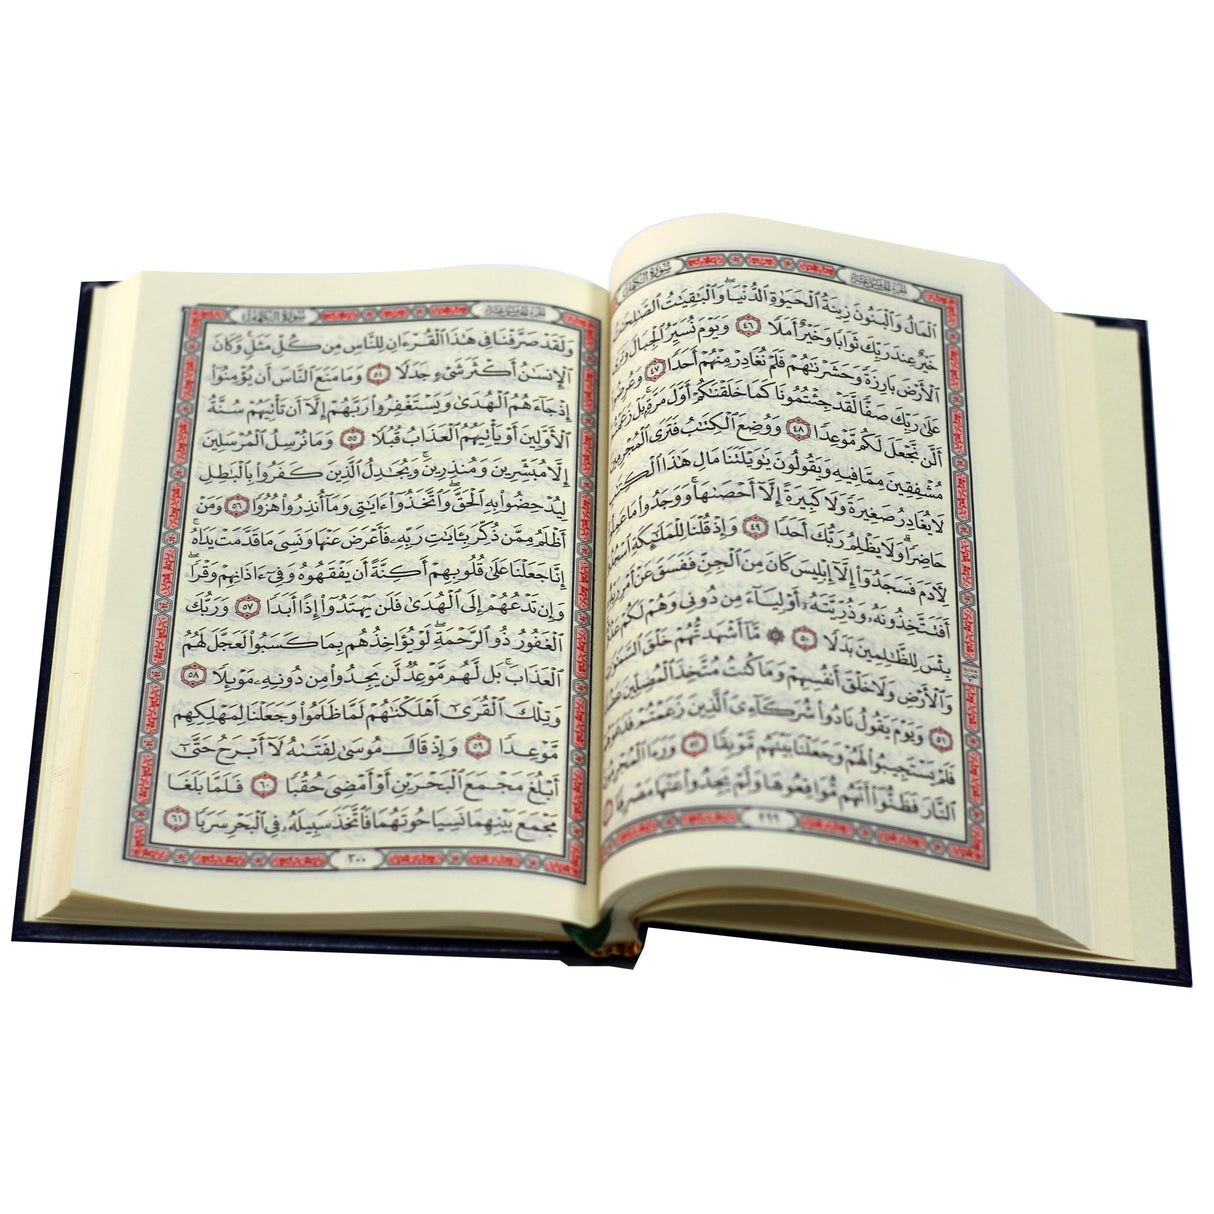 سُورَةُ الكَهْفِ
ٱلْمَالُ وَٱلْبَنُونَ زِينَةُ ٱلْحَيَوٰةِ ٱلدُّنْيَاۖ وَٱلْبَٰقِيَٰتُ
خَيْرٌ عِندَ رَبِّكَ ثَوَابًا وَخَيْرٌ أَمَلًا ٤٦ وَيَوْمَ نُسَيِّرُ ٱلْجِبَالَ
ٱلْأَرْضَ بَارِزَةً وَحَشَرْنَٰهُمْ فَلَمْ نُغَادِرْ مِنْهُمْ أَحَدًا ٤٧
عَلَىٰ رَبِّكَ صَفًّا لَّقَدْ جِئْتُمُونَا كَمَا خَلَقْنَٰكُمْ أَوَّلَ مَرَّةٍۭۚ بَلْ
أَلَّن نَّجْعَلَ لَكُم مَّوْعِدًا ٤٨ وَوُضِعَ ٱلْكِتَٰبُ فَتَرَى
مُشْفِقِينَ مِمَّا فِيهِ وَيَقُولُونَ يَٰوَيْلَتَنَا مَالِ هَٰذَا
لَا يُغَادِرُ صَغِيرَةً وَلَا كَبِيرَةً إِلَّآ أَحْصَىٰهَاۚ وَوَجَدُوا۟ مَا
حَاضِرًاۗ وَلَا يَظْلِمُ رَبُّكَ أَحَدًا ٤٩ وَإِذْ قُلْنَا لِلْمَلَٰٓئِكَةِ
لِءَادَمَ فَسَجَدُوٓا۟ إِلَّآ إِبْلِيسَ كَانَ مِنَ ٱلْجِنِّ فَفَسَقَ عَنْ أَمْرِ
أَفَتَتَّخِذُونَهُۥ وَذُرِّيَّتَهُۥٓ أَوْلِيَآءَ مِن دُونِى وَهُمْ لَكُمْ
بِئْسَ لِلظَّٰلِمِينَ بَدَلًا ٥٠ ۞ مَّآ أَشْهَدتُّهُمْ خَلْقَ
وَٱلْأَرْضِ وَلَا خَلْقَ أَنفُسِهِمْ وَمَا كُنتُ مُتَّخِذَ ٱلْمُضِلِّينَ
٥١ وَيَوْمَ يَقُولُ نَادُوا۟ شُرَكَآءِىَ ٱلَّذِينَ زَعَمْتُمْ
فَلَمْ يَسْتَجِيبُوا۟ لَهُمْ وَجَعَلْنَا بَيْنَهُم مَّوْبِقًا ٥٢ وَرَءَا
ٱلنَّارَ فَظَنُّوٓا۟ أَنَّهُم مُّوَاقِعُوهَا وَلَمْ يَجِدُوا۟ عَنْهَا مَصْرِفًا ٥٣
٢٩٩
سُورَةُ الكَهْفِ
وَلَقَدْ صَرَّفْنَا فِى هَٰذَا ٱلْقُرْءَانِ لِلنَّاسِ مِن كُلِّ مَثَلٍۚ وَكَانَ
ٱلْإِنسَٰنُ أَكْثَرَ شَىْءٍ جَدَلًا ٥٤ وَمَا مَنَعَ ٱلنَّاسَ أَن يُؤْمِنُوٓا۟
إِذْ جَآءَهُمُ ٱلْهُدَىٰ وَيَسْتَغْفِرُوا۟ رَبَّهُمْ إِلَّآ أَن تَأْتِيَهُمْ سُنَّةُ
ٱلْأَوَّلِينَ أَوْ يَأْتِيَهُمُ ٱلْعَذَابُ قُبُلًا ٥٥ وَمَا نُرْسِلُ ٱلْمُرْسَلِينَ
إِلَّا مُبَشِّرِينَ وَمُنذِرِينَۚ وَيُجَٰدِلُ ٱلَّذِينَ كَفَرُوا۟ بِٱلْبَٰطِلِ
لِيُدْحِضُوا۟ بِهِ ٱلْحَقَّۖ وَٱتَّخَذُوٓا۟ ءَايَٰتِى وَمَآ أُنذِرُوا۟ هُزُوًا ٥٦ وَمَنْ
أَظْلَمُ مِمَّن ذُكِّرَ بِـَٔايَٰتِ رَبِّهِۦ فَأَعْرَضَ عَنْهَا وَنَسِىَ مَا قَدَّمَتْ يَدَاهُۚ
إِنَّا جَعَلْنَا عَلَىٰ قُلُوبِهِمْ أَكِنَّةً أَن يَفْقَهُوهُ وَفِىٓ ءَاذَانِهِمْ وَقْرًاۖ
وَإِن تَدْعُهُمْ إِلَى ٱلْهُدَىٰ فَلَن يَهْتَدُوٓا۟ إِذًا أَبَدًا ٥٧ وَرَبُّكَ
ٱلْغَفُورُ ذُو ٱلرَّحْمَةِۖ لَوْ يُؤَاخِذُهُم بِمَا كَسَبُوا۟ لَعَجَّلَ لَهُمُ
ٱلْعَذَابَۚ بَل لَّهُم مَّوْعِدٌ لَّن يَجِدُوا۟ مِن دُونِهِۦ مَوْئِلًا ٥٨
وَتِلْكَ ٱلْقُرَىٰٓ أَهْلَكْنَٰهُمْ لَمَّا ظَلَمُوا۟ وَجَعَلْنَا لِمَهْلِكِهِم
مَّوْعِدًا ٥٩ وَإِذْ قَالَ مُوسَىٰ لِفَتَىٰهُ لَآ أَبْرَحُ حَتَّىٰٓ
أَبْلُغَ مَجْمَعَ ٱلْبَحْرَيْنِ أَوْ أَمْضِىَ حُقُبًا ٦٠ فَلَمَّا بَلَغَا
مَجْمَعَ بَيْنِهِمَا نَسِيَا حُوتَهُمَا فَٱتَّخَذَ سَبِيلَهُۥ فِى ٱلْبَحْرِ سَرَبًا ٦١
٣٠٠